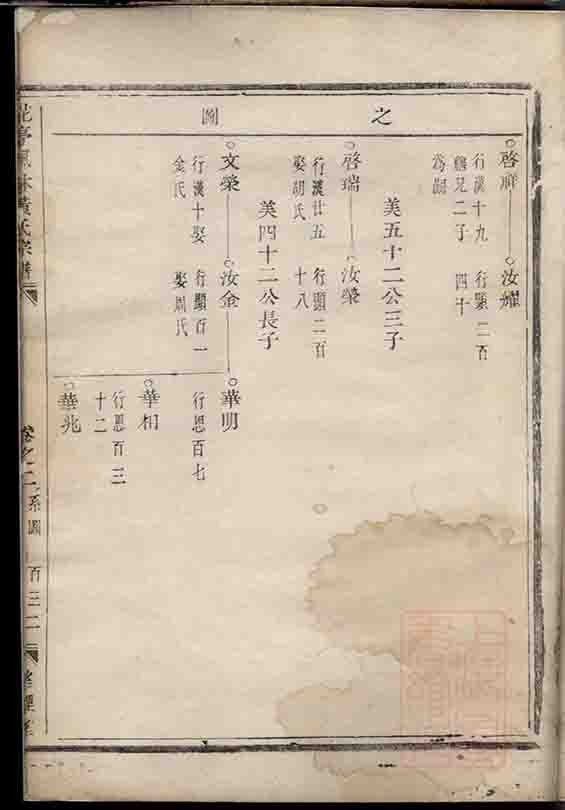 之
圖
啓祥
汝耀
行漢十九
繼兄二子
為嗣
行顯二百
四十
美五十二公三子
啓瑞
汝榮
行漢廿五
娶胡氏
行顯二百
十八
美四十二公長子
文榮
汝金
華明
行漢十娶
金氏
行顯百一
娶周氏
行思百七
華相
行思百三
十二
華兆
花亭
林黃氏宗譜
卷之二
系圖
百三二